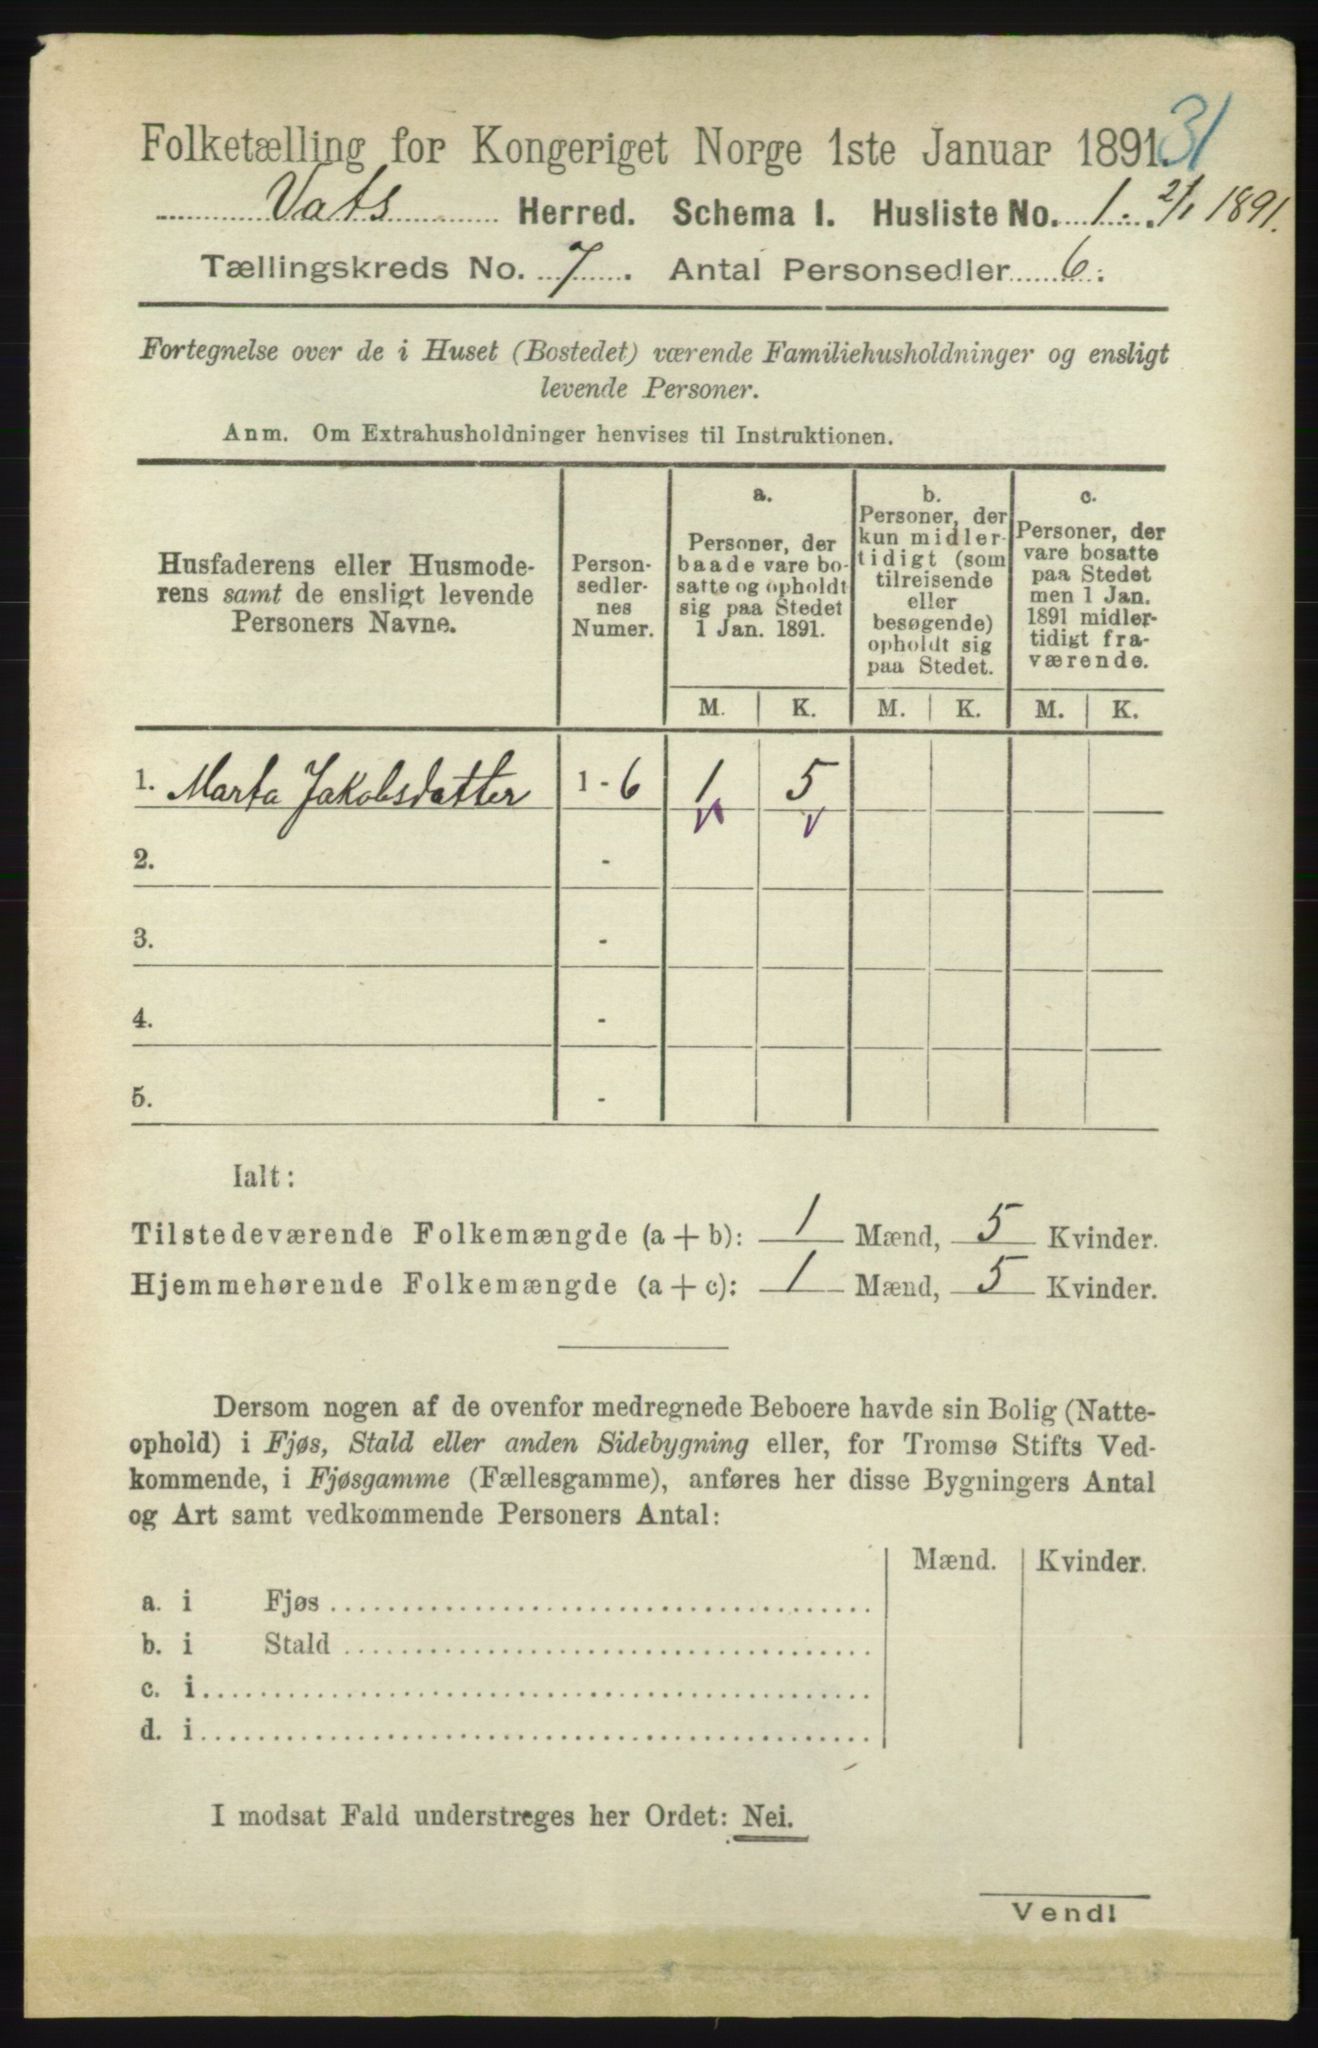 31
Folketælling for Kongeriget Norge 1ste Januar 1891.
Vats Herred. Schema I. Husliste No. 1. 2/1 1891.
Tællingskreds No. 7. Antal Personsedler 6.
Fortegnelse over de i Huset (Bostedet) værende Familiehusholdninger og ensligt
levende Personer.
Anm. Om Extrahusholdninger henvises til Instruktionen.
Husfaderens eller Husmode-
rens samt de ensligt levende
Personers Navne.
Person-
sedler-
nes
Numer.
a.
Personer, der
baade vare bo-
satte og opholdt
sig paa Stedet
1 Jan. 1891.
b.
Personer, der
kun midler-
tidigt (som
tilreisende
eller
besøgende)
opholdt sig
paa Stedet.
c.
Personer, der
vare bosatte
paa Stedet
men 1 Jan.
1891 midler-
tidigt fra-
værende.
M. K. M. K. M. K.
1. Marta Jakobsdatter 1 - 6 1 5
2. -
3. -
4. -
5. -
Ialt:
Tilstedeværende Folkemængde (a + b): 1 Mænd, 5 Kvinder.
Hjemmehørende Folkemængde (a + c): 1 Mænd, 5 Kvinder.
Dersom nogen af de ovenfor medregnede Beboere havde sin Bolig (Natte-
ophold) i Fjøs, Stald eller anden Sidebygning eller, for Tromsø Stifts Ved-
kommende, i Fjøsgamme (Fællesgamme), anføres her disse Bygningers Antal
og Art samt vedkommende Personers Antal:
Mænd. Kvinder.
a. i Fjøs
b. i Stald
c. i
d. i
I modsat Fald understreges her Ordet: Nei.
Vend!